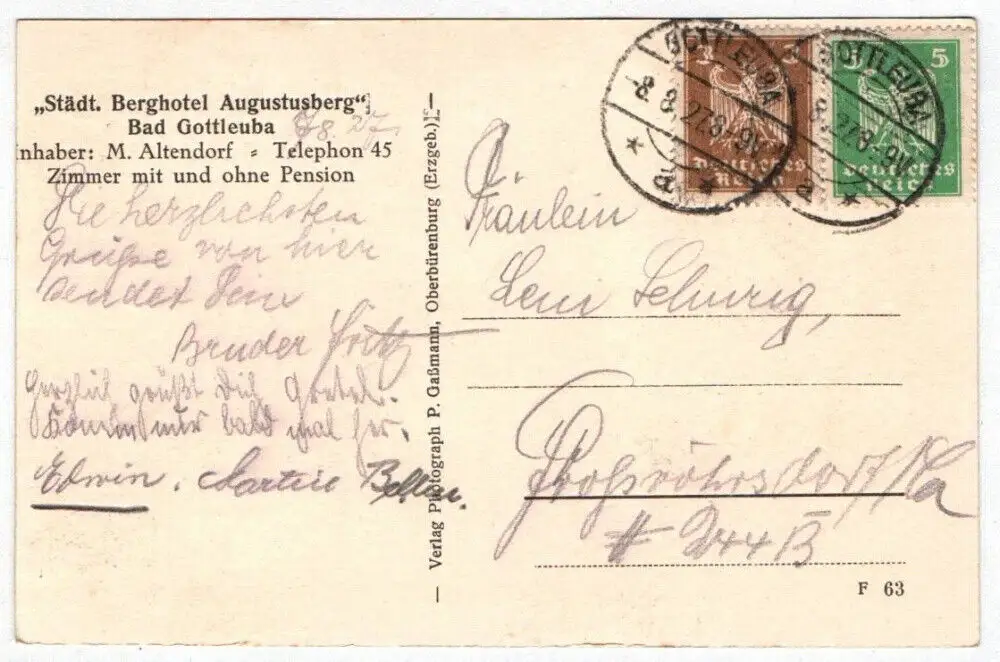 „Städt. Berghotel Augustusberg"
Bad Gottleuba
Inhaber: M. Altendorf - Telephon 45
Zimmer mit und ohne Pension
7.8.27.
Die herzlichsten
Grüße von hier
sendet Dein
Bruder Fritz
Herzlich grüßt Dich Gretel.
Komm nur bald mal her.
Edwin. Martin
Verlag Photograph P. Gaßmann, Oberbürenburg (Erzgeb.)
GOTTLEUBA
-8.8.27.8-9V.
a
3 3
Deutsches
Reich
GOTTLEUBA
8.27.8-9V.
a
5
Deutsches
Reich
Fräulein
Leni Schurig,
Großröhrsdorf i/Sa
# 244 B
F 63